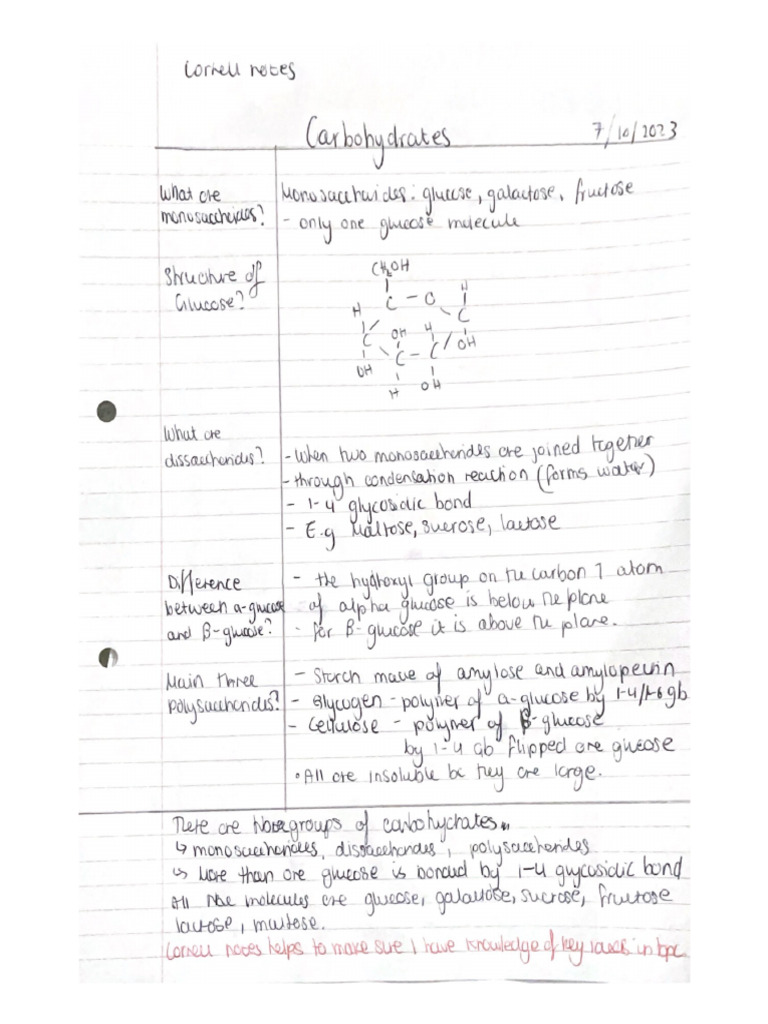 Cornell notes
Carbohydrates 7/10/2023
What are monosaccharides?
Monosaccharides: glucose, galactose, fructose
- only one glucose molecule
Structure of
Glucose?
CH2OH
C - O H
H C
C OH H OH
C - C
OH
H OH
What are
dissacharides?
- When two monosaccharides are joined together
- through condensation reaction (forms water)
- 1-4 glycosidic bond
- E.g Maltose, sucrose, lactose
Difference
between a-glucose
and β-glucose?
- the hydroxyl group on the carbon 1 atom
of alpha glucose is below the plane
- for β-glucose it is above the plane.
Main three
polysaccharides?
- Starch made of amylose and amylopectin
- Glycogen - polymer of a-glucose by 1-4/1-6 gb
- Cellulose - polymer of β-glucose
by 1-4 gb flipped one glucose
• All are insoluble bc they are large.
There are groups of carbohydrates
↳ monosaccharides, dissacharides, polysaccharides
↳ More than one glucose is bonded by 1-4 glycosidic bond
All the molecules are glucose, galactose, sucrose, fructose
lactose, maltose.
Cornell notes helps to make sure I have knowledge of key in